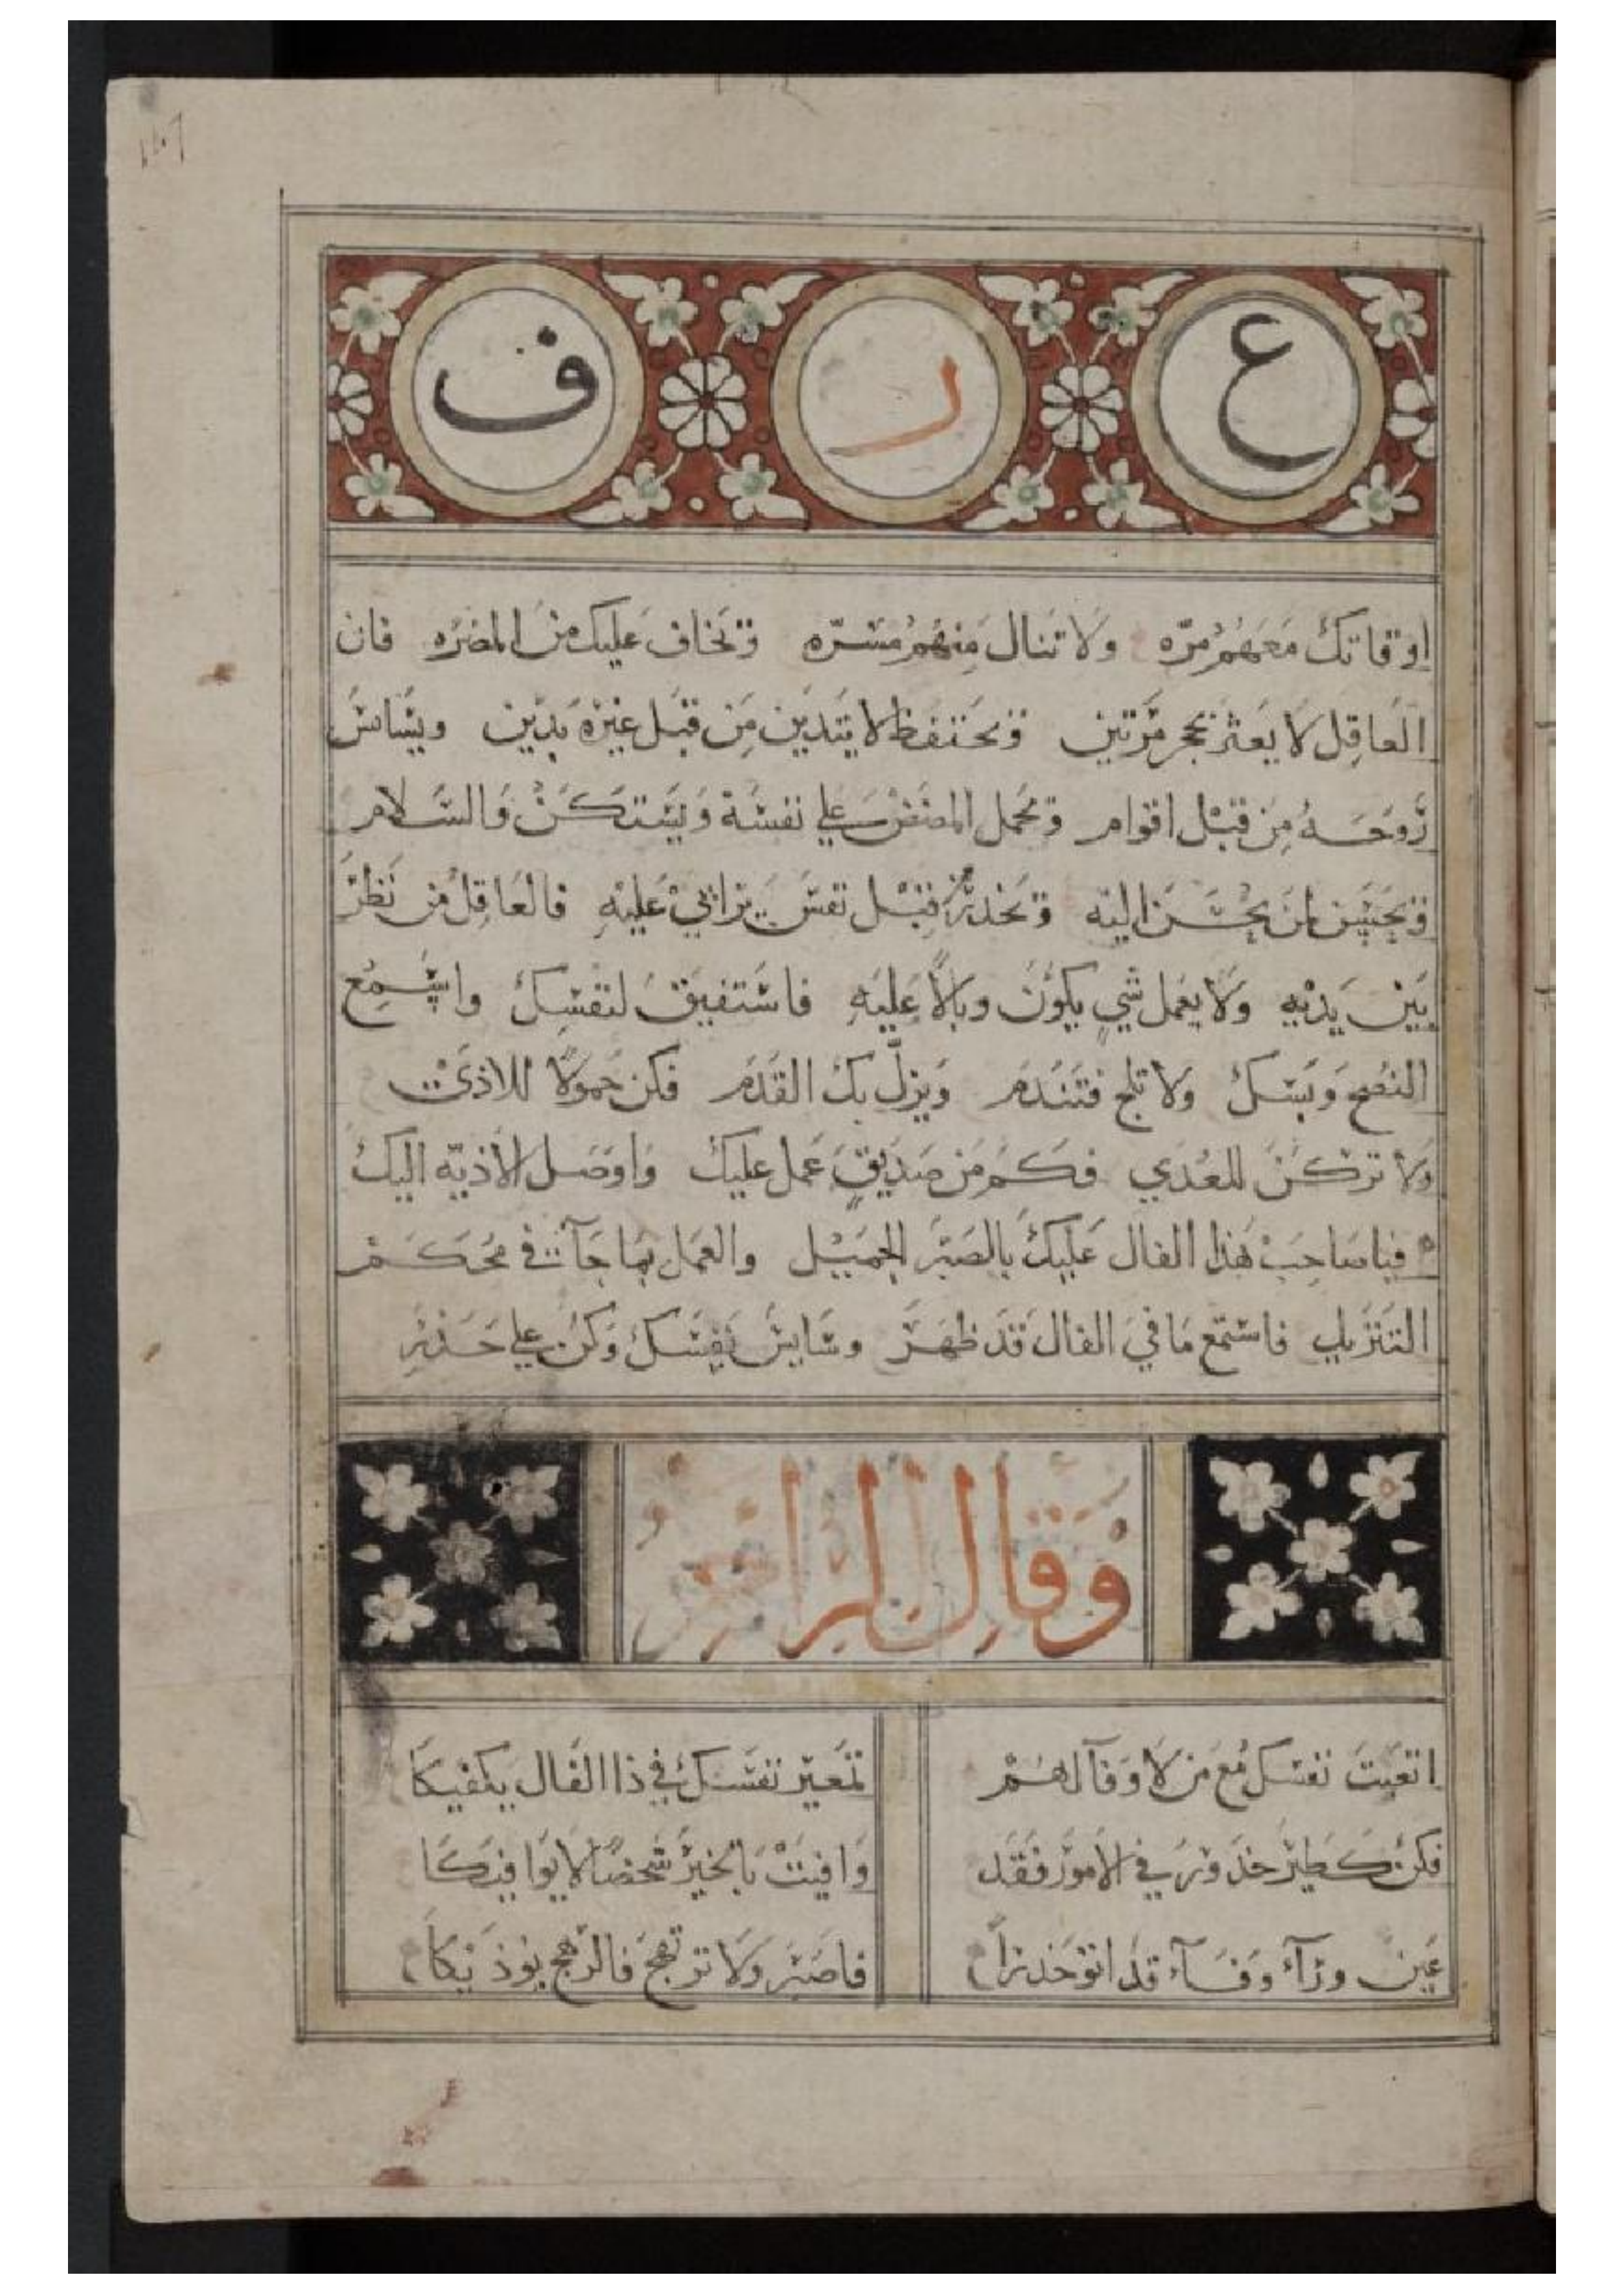 ع ر ف
اوقاتك معهم مرّه ولا تنال منهم مسرّه وتخاف عليك من المضره فان
العاقل لا يعثر بحجر مرّتين وتحتفظ لا يتدين من قبل غيره بدين ويسايس
روحه من قبل اقوام وتحمل المضض علي نفسه ويستكن والسلام
لمن يحسن اليه وتحذر قبل عليه فالعاقل من نظر
بين يديه ولا يعمل شي يكون وبالًا عليه فاستفيق لنفسك واستمع
النصح ولا تلج فتندم ويزلّ بك القدم فكن حمولًا للاذي
ولا تركن للعدي فكم من صديقٍ عمل عليك واوصل الاذيّه اليك
فيا صاحب هذا الفال عليك بالصبر الجميل والعمل بما جآ في محكم
التنزيل فاستمع ما في الفال قد ظهر وسايس نفسك وكن علي حذر
وقال
اتعبت نفسك مع من لا وفآ لهم تمعير نفسك في ذا الفال يكفيكا
فكن كطير حذور في الامور فقد وافيت بالخير شخصًا لا يوافيكا
عين ورآء وفآء قد اتو حذرًا فاصبر ولا ترتهج فالرهج يوذيكا